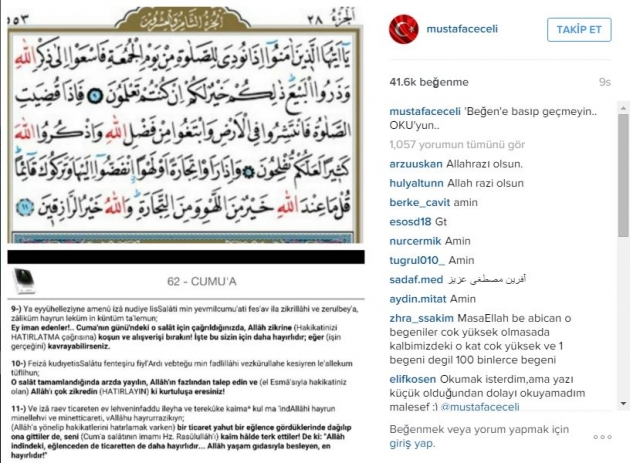 ٥٥٣ الجزء الثامن والعشرون الجزء ٢٨
يَٓا اَيُّهَا الَّذ۪ينَ اٰمَنُٓوا اِذَا نُودِيَ لِلصَّلٰوةِ مِنْ يَوْمِ الْجُمُعَةِ فَاسْعَوْا اِلٰى ذِكْرِ اللّٰهِ
وَذَرُوا الْبَيْعَ ذٰلِكُمْ خَيْرٌ لَكُمْ اِنْ كُنْتُمْ تَعْلَمُونَ ٩ فَاِذَا قُضِيَتِ
الصَّلٰوةُ فَانْتَشِرُوا فِي الْاَرْضِ وَابْتَغُوا مِنْ فَضْلِ اللّٰهِ وَاذْكُرُوا اللّٰهَ
كَث۪يرًا لَعَلَّكُمْ تُفْلِحُونَ ١٠ وَاِذَا رَاَوْا تِجَارَةً اَوْ لَهْوًاۨ انْفَضُّٓوا اِلَيْهَا وَتَرَكُوكَ قَٓائِمًا
قُلْ مَا عِنْدَ اللّٰهِ خَيْرٌ مِنَ اللَّهْوِ وَمِنَ التِّجَارَةِ وَاللّٰهُ خَيْرُ الرَّازِق۪ينَ ١١
62 - CUMU'A
9-) Ya eyyühelleziyne amenû izâ nudiye lisSalâti min yevmilcumu'ati fes'av ila zikrillâhi ve zerulbey'a,
zâliküm hayrun leküm in küntüm ta'lemun;
Ey iman edenler!.. Cuma'nın günü'ndeki o salât için çağrıldığınızda, Allâh zikrine (Hakikatinizi
HATIRLATMA çağrısına) koşun ve alışverişi bırakın! İşte bu sizin için daha hayırlıdır; eğer (işin
gerçeğini) kavrayabilirseniz.
10-) Feizâ kudıyetisSalâtu fenteşiru fiyl'Ardı vebteğu min fadlillâhi vezkürullahe kesiyren le'allekum
tüflihun;
O salât tamamlandığında arzda yayılın, Allâh'ın fazlından talep edin ve (el Esmâ'sıyla hakikatiniz
olan) Allâh'ı çok zikredin (HATIRLAYIN) ki kurtuluşa eresiniz!
11-) Ve izâ raev ticareten ev lehveninfaddu ileyha ve terekûke kaima* kul ma 'indAllâhi hayrun
minellehvi ve minetticareti, vAllâhu hayrurrazikıyn;
(Allâh'a yönelip hakikatlerini hatırlamak varken) bir ticaret yahut bir eğlence gördüklerinde dağılıp
ona gittiler de, seni (Cum'a salâtının imamı Hz. Rasûlullah'ı) kaîm hâlde terk ettiler! De ki: "Allâh
indîndeki, eğlenceden de ticaretten de daha hayırlıdır... Allâh yaşam gıdasıyla besleyen, en
hayırlıdır!"
mustafaceceli
TAKİP ET
41.6k beğenme 9s
mustafaceceli 'Beğen'e basıp geçmeyin..
OKU'yun..
1,057 yorumun tümünü gör
arzuuskan Allahrazı olsun.
hulyaltunn Allah razi olsun
berke_cavit amin
esosd18 Gt
nurcermik Amin
tugrul010_ Amin
sadaf.med آفرین مصطفی عزیز
aydin.mitat Amin
zhra_ssakim MasaEllah be abican o
begeniler cok yüksek olmasada
kalbimizdeki o kat cok yüksek ve 1
begeni degil 100 binlerce begeni
elifkosen Okumak isterdim,ama yazı
küçük olduğundan dolayı okuyamadım
malesef :) @mustafaceceli
Beğenmek veya yorum yapmak için
giriş yap.